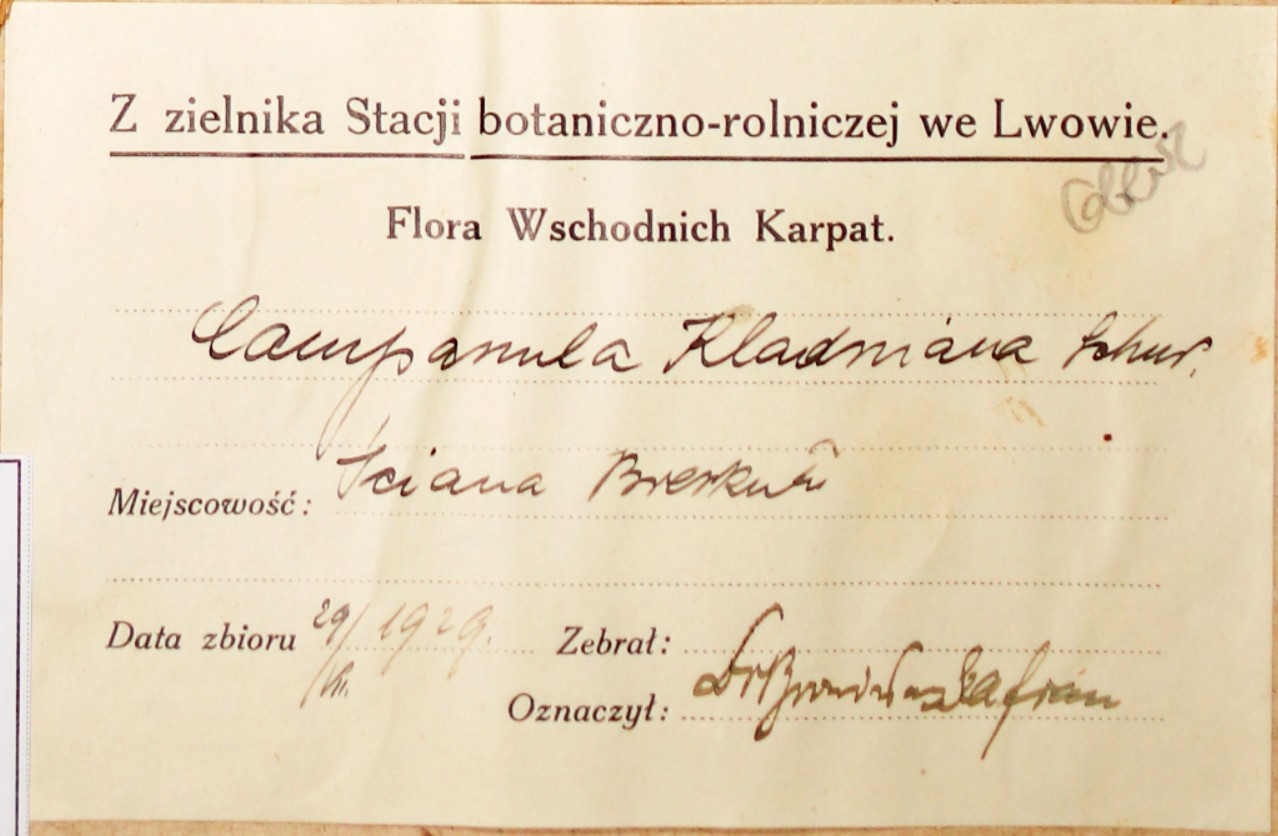 Z zielnika Stacji botaniczno-rolniczej we Lwowie.
Flora Wschodnich Karpat.
Campanula Kladniana Schur.
Miejscowość: Ściana
Data zbioru 29/ 1929. Zebrał:
Oznaczył: Dr Bronisław Szafran